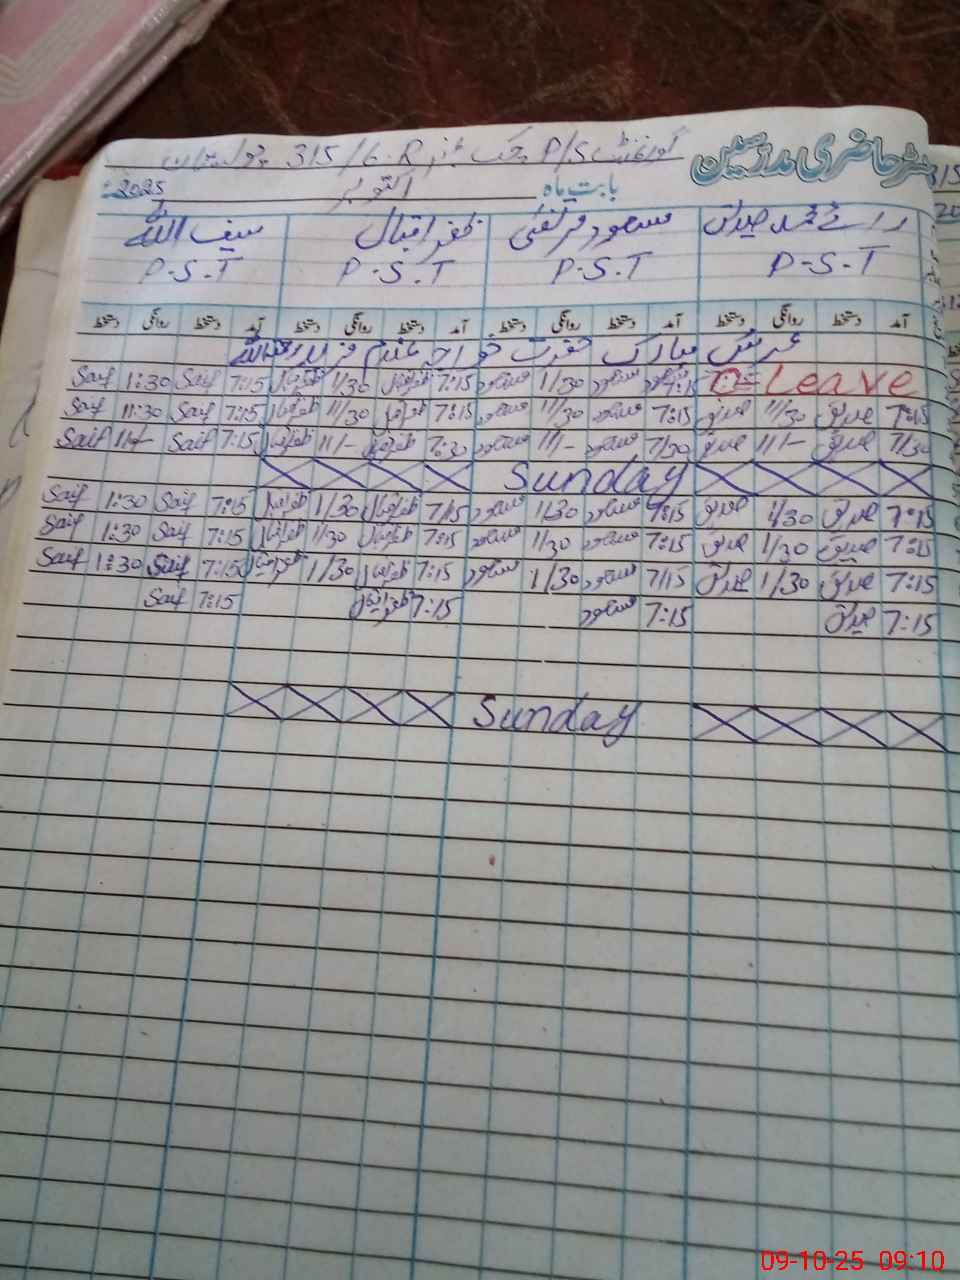 رجسٹر حاضری مدرسین
گورنمنٹ P/S چک نمبر 315/G.R
بابت ماہ اکتوبر 2025ء
رائے محمد صدیق مسعود مرتضیٰ ظفر اقبال سیف اللہ
P-S-T P-S-T P-S-T P-S-T
آمد دستخط روانگی دستخط آمد دستخط روانگی دستخط آمد دستخط روانگی دستخط آمد دستخط روانگی دستخط
عرس مبارک حضرت خواجہ غلام فرید
Leave 7:15 مسعود 1/30 مسعود 7:15 ظفر اقبال 1/30 ظفر اقبال 7:15 Saif 1:30 Saif
7:15 صدیق 11/30 صدیق 7:15 مسعود 11/30 مسعود 7:15 ظفر اقبال 11/30 ظفر اقبال 7:15 Saif 11:30 Saif
7/30 صدیق 11/- صدیق 7/30 مسعود 11/- مسعود 7:30 ظفر اقبال 11/- ظفر اقبال 7:15 Saif 11/- Saif
Sunday
7:15 صدیق 1/30 صدیق 7:15 مسعود 1/30 مسعود 7/15 ظفر اقبال 1/30 ظفر اقبال 7:15 Saif 1:30 Saif
7:15 صدیق 1/30 صدیق 7:15 مسعود 1/30 مسعود 7:15 ظفر اقبال 1/30 ظفر اقبال 7:15 Saif 1:30 Saif
7:15 صدیق 1/30 صدیق 7/15 مسعود 1/30 مسعود 7:15 ظفر اقبال 1/30 ظفر اقبال 7:15 Saif 1:30 Saif
7:15 صدیق 7:15 مسعود 7:15 ظفر اقبال 7:15 Saif
Sunday
09-10-25 09:10